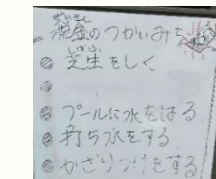 税金のつかいみち
◎ 芝生をしく
◎
◎ プールに水をはる
◎ 打ち水をする
◎ かざりつけをする